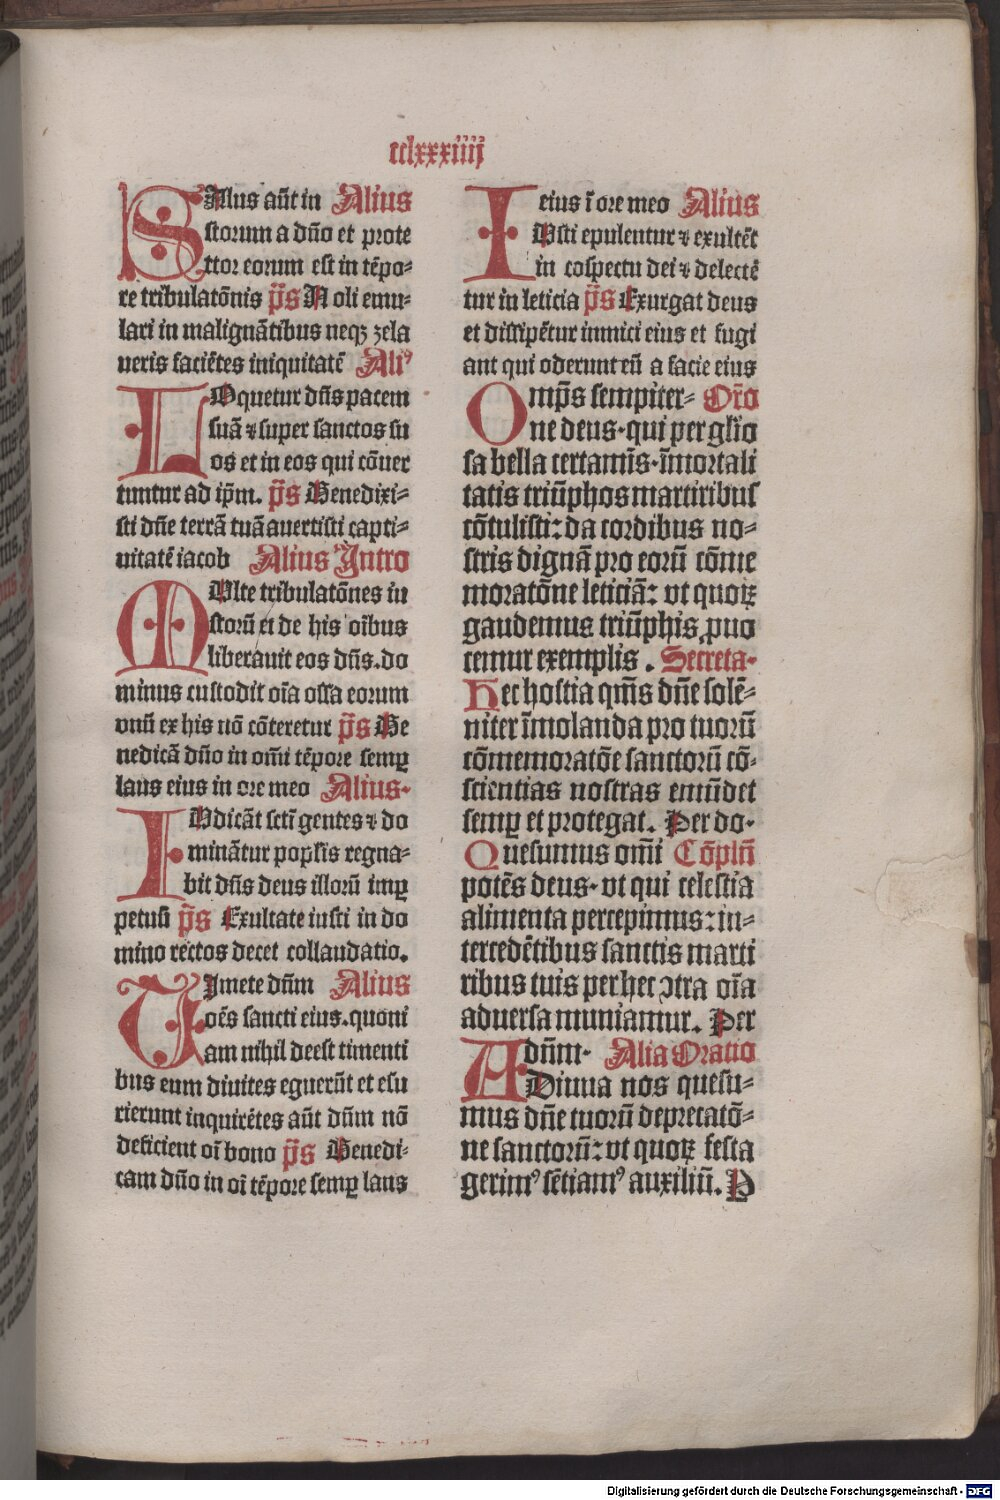 cclxxxiiij
SAlus aūt in Alius
storum a dn̄o et prote
ctor eorum est in tēpo⸗
re tribulatōnis p̄s Noli emu⸗
lari in malignātibus neqꝫ zela
ueris faciētes iniquitatē Aliꝰ
LOquetur dn̄s pacem
suā ⁊ super sanctos su
os et in eos qui cōuer
tuntur ad ip̄m. p̄s Benedixi⸗
sti dn̄e terrā tuā auertisti capti⸗
uitatē iacob Alius Intro
MUlte tribulatōnes iu
storū et de his oībus
liberauit eos dn̄s. do
minus custodit oīa ossa eorum
vnū ex his nō cōteretur p̄s Be
nedicā dn̄o in om̄i tēpore semꝑ
laus eius in ore meo Alius.
IUdicāt sctī gentes ⁊ do
minātur popl̄is regna⸗
bit dn̄s deus illorū imꝑ
petuū p̄s Exultate iusti in do
mino rectos decet collaudatio.
TImete dn̄m Alius
oēs sancti eius. quoni
am nihil deest timenti
bus eum diuites eguerūt et esu
rierunt inquirētes aūt dn̄m nō
deficient oī bono p̄s Benedi⸗
cam dn̄o in oī tēpore semꝑ laus
eius ī ore meo Alius
IUsti epulentur ⁊ exultēt
in cōspectu dei ⁊ delectē
tur in leticia p̄s Exurgat deus
et dissipētur inimici eius et fugi
ant qui oderunt eū a facie eius
Omp̄s sempiter⸗ Or̄o
ne deus. qui per gl̄io
sa bella certamīs. īmortali
tatis triūphos martiribus
cōtulisti: da cordibus no⸗
stris dignā pro eorū cōme
moratōne leticiā: vt quoꝝ
gaudemus triūphis ꝓuo
cemur exemplis. Secreta.
Hec hostia qm̄s dn̄e solē⸗
niter īmolanda pro tuorū
cōmemoratōe sanctorū cō⸗
scientias nostras emūdet
semꝑ et protegat. Per do.
Quesumus om̄i Cōpln̄
potēs deus. vt qui celestia
alimenta percepimus: in⸗
tercedētibus sanctis marti
ribus tuis per hec ↄtra oīa
aduersa muniamur. Per
dn̄m. Alia Oratio
ADiuua nos quesu⸗
mus dn̄e tuorū deprecatō⸗
ne sanctorū: vt quoꝝ festa
gerimꝰ sētiamꝰ auxiliū. P
Digitalisierung gefördert durch die Deutsche Forschungsgemeinschaft - DFG